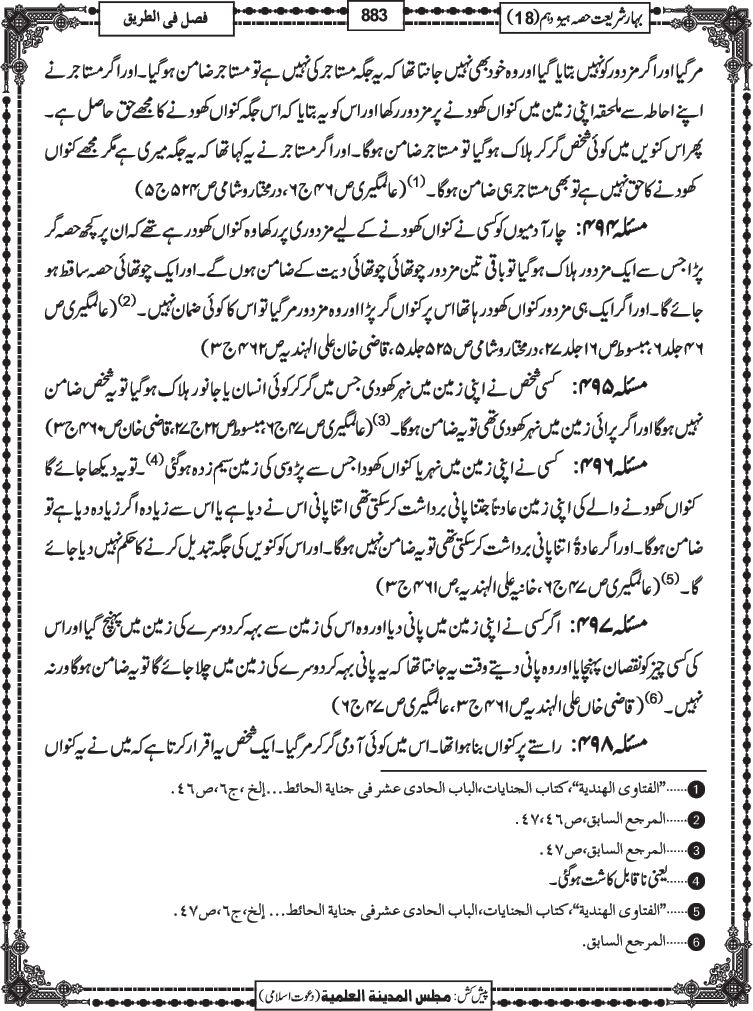 بہارشریعت حصہ ہیژدہم (18)
883
فصل فی الطریق
مرگیا اور اگر مزدور کو نہیں بتایا گیا اور وہ خود بھی نہیں جانتا تھا کہ یہ جگہ مستاجر کی نہیں ہے تو مستاجر ضامن ہوگیا۔ اور اگر مستاجر نے
اپنے احاطہ سے ملحقہ اپنی زمین میں کنواں کھودنے پر مزدور رکھا اور اس کو یہ بتایا کہ اس جگہ کنواں کھودنے کا مجھے حق حاصل ہے۔
پھر اس کنویں میں کوئی شخص گر کر ہلاک ہوگیا تو مستاجر ضامن ہوگا۔ اور اگر مستاجر نے یہ کہا تھا کہ یہ جگہ میری ہے مگر مجھے کنواں
کھودنے کا حق نہیں ہے تو بھی مستاجر ہی ضامن ہوگا۔(1) (عالمگیری ص ۴۶ ج ۶، درمختار و شامی ص ۵۲۴ ج ۵)
مسئلہ ۴۹۴: چار آدمیوں کو کسی نے کنواں کھودنے کے لیے مزدوری پر رکھا وہ کنواں کھود رہے تھے کہ ان پر کچھ حصہ گر
پڑا جس سے ایک مزدور ہلاک ہوگیا تو باقی تین مزدور چوتھائی چوتھائی دیت کے ضامن ہوں گے۔ اور ایک چوتھائی حصہ ساقط ہو
جائے گا۔ اور اگر ایک ہی مزدور کنواں کھود رہا تھا اس پر کنواں گر پڑا اور وہ مزدور مرگیا تو اس کا کوئی ضمان نہیں۔(2) (عالمگیری ص
۴۶ جلد ۶، مبسوط ص ۱۶ جلد ۲۷، درمختار و شامی ص ۵۲۵ جلد ۵، قاضی خان علی الہندیہ ص ۴۶۲ ج ۳)
مسئلہ ۴۹۵: کسی شخص نے اپنی زمین میں نہر کھودی جس میں گر کر کوئی انسان یا جانور ہلاک ہوگیا تو یہ شخص ضامن
نہیں ہوگا اور اگر پرائی زمین میں نہر کھودی تھی تو یہ ضامن ہوگا۔(3) (عالمگیری ص ۴۷ ج ۶، مبسوط ص ۲۲ ج ۲۷، قاضی خان ص ۴۶۰ ج ۳)
مسئلہ ۴۹۶: کسی نے اپنی زمین میں نہر یا کنواں کھودا جس سے پڑوسی کی زمین سیم زدہ ہوگئی(4)۔ تو یہ دیکھا جائے گا
کنواں کھودنے والے کی اپنی زمین عادتاً جتنا پانی برداشت کرسکتی تھی اتنا پانی اس نے دیا ہے یا اس سے زیادہ اگر زیادہ دیا ہے تو
ضامن ہوگا۔ اور اگر عادۃً اتنا پانی برداشت کرسکتی تھی تو یہ ضامن نہیں ہوگا۔ اور اس کو کنویں کی جگہ تبدیل کرنے کا حکم نہیں دیا جائے
گا۔(5) (عالمگیری ص ۴۷ ج ۶، خانیہ علی الہندیہ، ص ۴۶۱ ج ۳)
مسئلہ ۴۹۷: اگر کسی نے اپنی زمین میں پانی دیا اور وہ اس کی زمین سے بہہ کر دوسرے کی زمین میں پہنچ گیا اور اس
کی کسی چیز کو نقصان پہنچایا اور وہ پانی دیتے وقت یہ جانتا تھا کہ یہ پانی بہہ کر دوسرے کی زمین میں چلا جائے گا تو یہ ضامن ہوگا ورنہ
نہیں۔(6) (قاضی خاں علی الہندیہ ص ۴۶۱ ج ۳، عالمگیری ص ۴۷ ج ۶)
مسئلہ ۴۹۸: راستے پر کنواں بنا ہوا تھا۔ اس میں کوئی آدمی گر کر مرگیا۔ ایک شخص یہ اقرار کرتا ہے کہ میں نے یہ کنواں
1 ......"الفتاوی الھندیة"، کتاب الجنایات، الباب الحادی عشر فی جنایة الحائط... إلخ ،ج٦،ص٤٦.
2 ......المرجع السابق،ص٤٧،٤٦.
3 ......المرجع السابق،ص٤٧.
4 ......یعنی ناقابل کاشت ہوگئی۔
5 ......"الفتاوی الھندیة"، کتاب الجنایات، الباب الحادی عشر فی جنایة الحائط... إلخ،ج٦،ص٤٧.
6 ......المرجع السابق.
پیش کش: مجلس المدینة العلمیة (دعوت اسلامی)